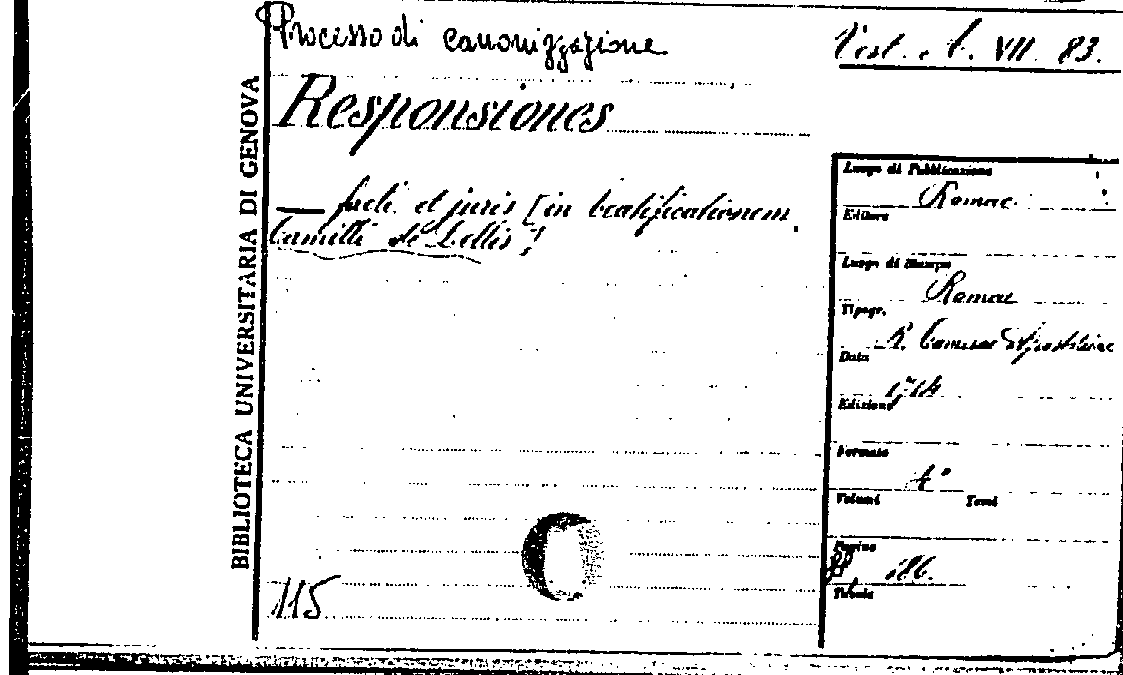 Processo di canonizzazione
Vest. A. VII. 83.
Responsiones
— facti et juris [in beatificationem
Camilli de Lellis]
BIBLIOTECA UNIVERSITARIA DI GENOVA
Luogo di Pubblicazione
Romae
Editore
Luogo di Stampa
Romae
Tipogr.
R. Camerae Apostolicae
Data
Edizione
Formato
4°
Volumi Tomi
Pagine
Tabula
115